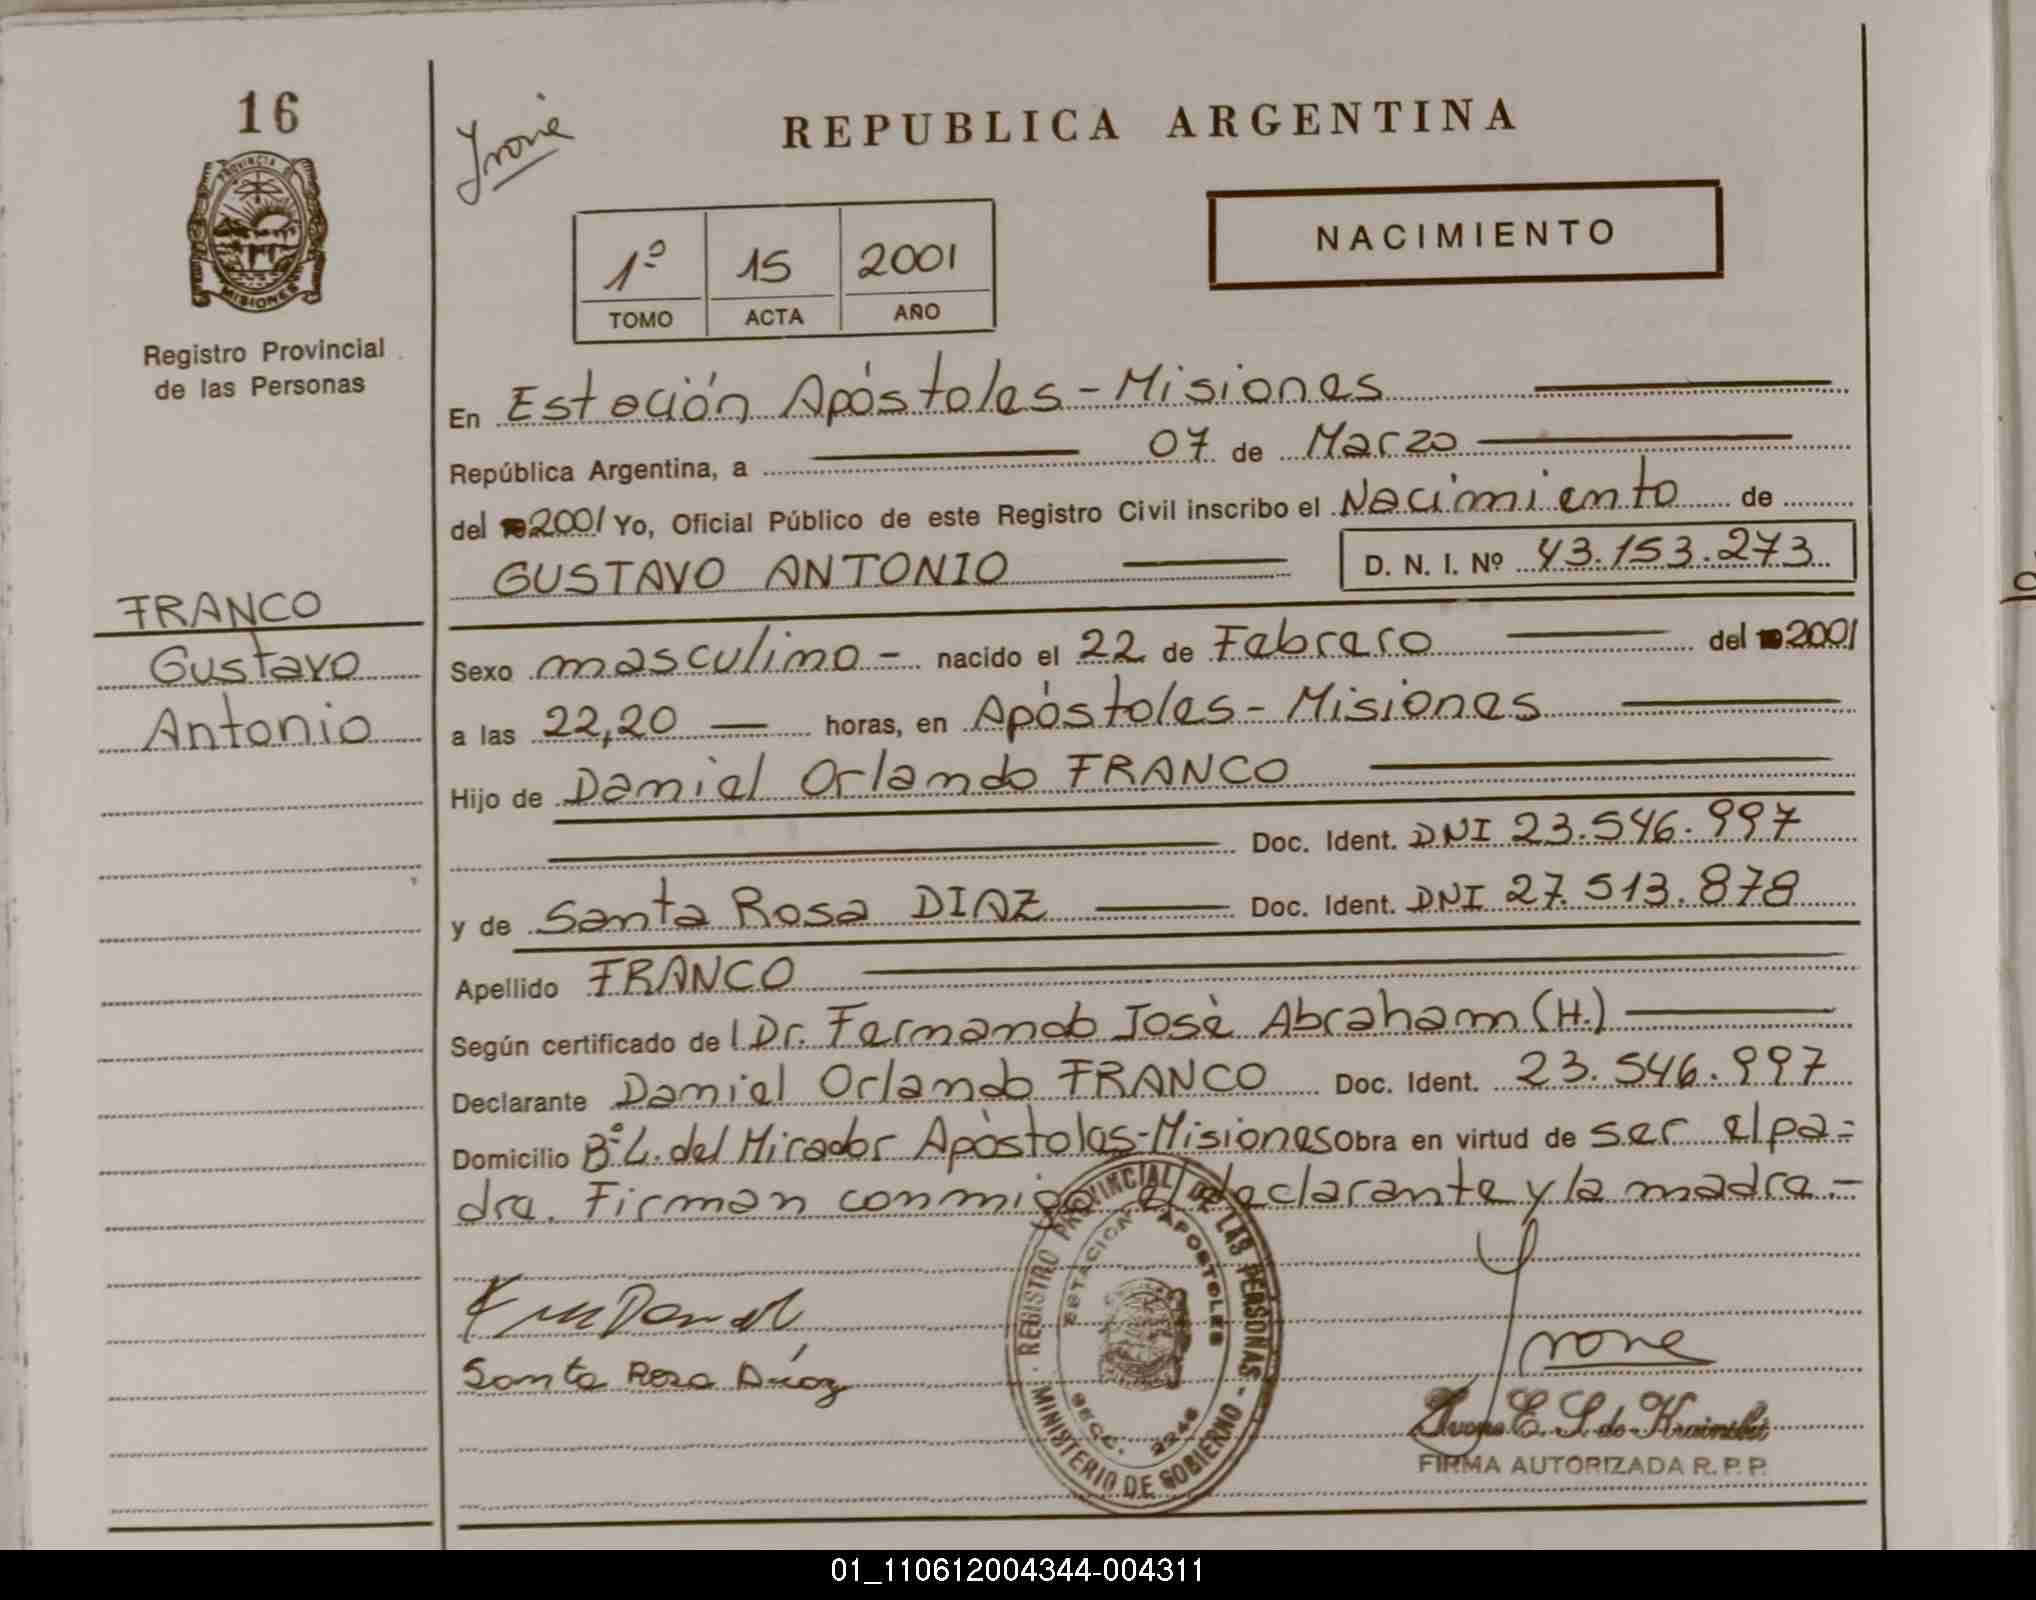 16
PROVINCIA D
MISIONES
Registro Provincial
de las Personas
FRANCO
Gustavo
Antonio
Ivone
REPUBLICA ARGENTINA
1º 15 2001
TOMO ACTA AÑO
NACIMIENTO
En Estación Apóstoles - Misiones
República Argentina, a 07 de Marzo
del 2001 Yo, Oficial Público de este Registro Civil inscribo el Nacimiento de
GUSTAVO ANTONIO D. N. I. Nº 43.153.273
Sexo masculino - nacido el 22 de Febrero del 2001
a las 22,20 horas, en Apóstoles - Misiones
Hijo de Daniel Orlando FRANCO
Doc. Ident. DNI 23.546.997
y de Santa Rosa DIAZ Doc. Ident. DNI 27.513.878
Apellido FRANCO
Según certificado del Dr. Fernando Josè Abraham (H.)
Declarante Daniel Orlando FRANCO Doc. Ident. 23.546.997
Domicilio Bº L. del Mirador Apòstoles-Misiones obra en virtud de ser el pa-
dre. Firman conmigo el declarante y la madre.-
Santa Rosa Díaz
REGISTRO PROVINCIAL DE LAS PERSONAS - MINISTERIO DE GOBIERNO -
ESTACION APOSTOLES
SECC. 2246
Ivone
Ivone E. S. de Krainski
FIRMA AUTORIZADA R. P. P.
01_110612004344-004311